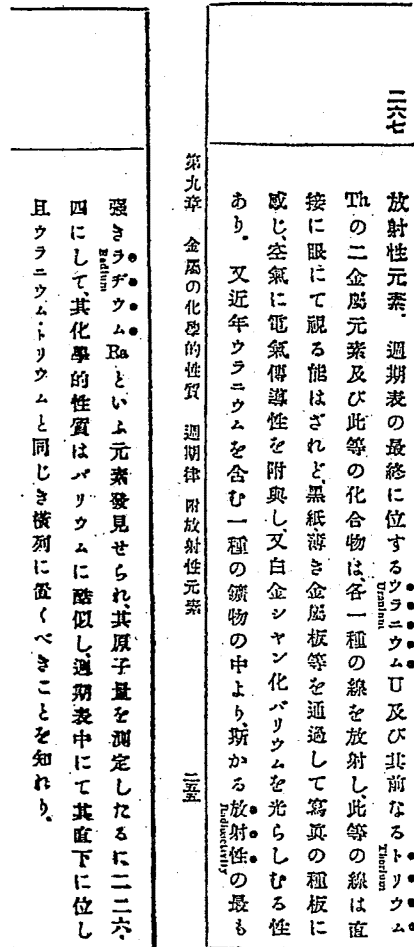 二六七
放射性元素．週期表の最終に位するウラニウムU及び其前なるトリウム
Uranium
Thorium
Thの二金屬元素及び此等の化合物は、各一種の線を放射し、此等の線は直
接に眼にて視る能はざれど、黑紙薄き金屬板等を通過して寫眞の種板に
感じ、空氣に電氣傳導性を附與し、又白金シャン化バリウムを光らしむる性
あり．又近年ウラニウムを含む一種の鑛物の中より、斯かる放射性の最も
Radioactivity
第九章 金屬の化學的性質 週期律 附放射性元素
二五五
强きラヂウムRaといふ元素發見せられ、其原子量を測定したるに二二六、
Radium
四にして、其化學的性質はバリウムに酷似し、週期表中にて其直下に位し
且ウラニウム・トリウムと同じき橫列に置くべきことを知れり．